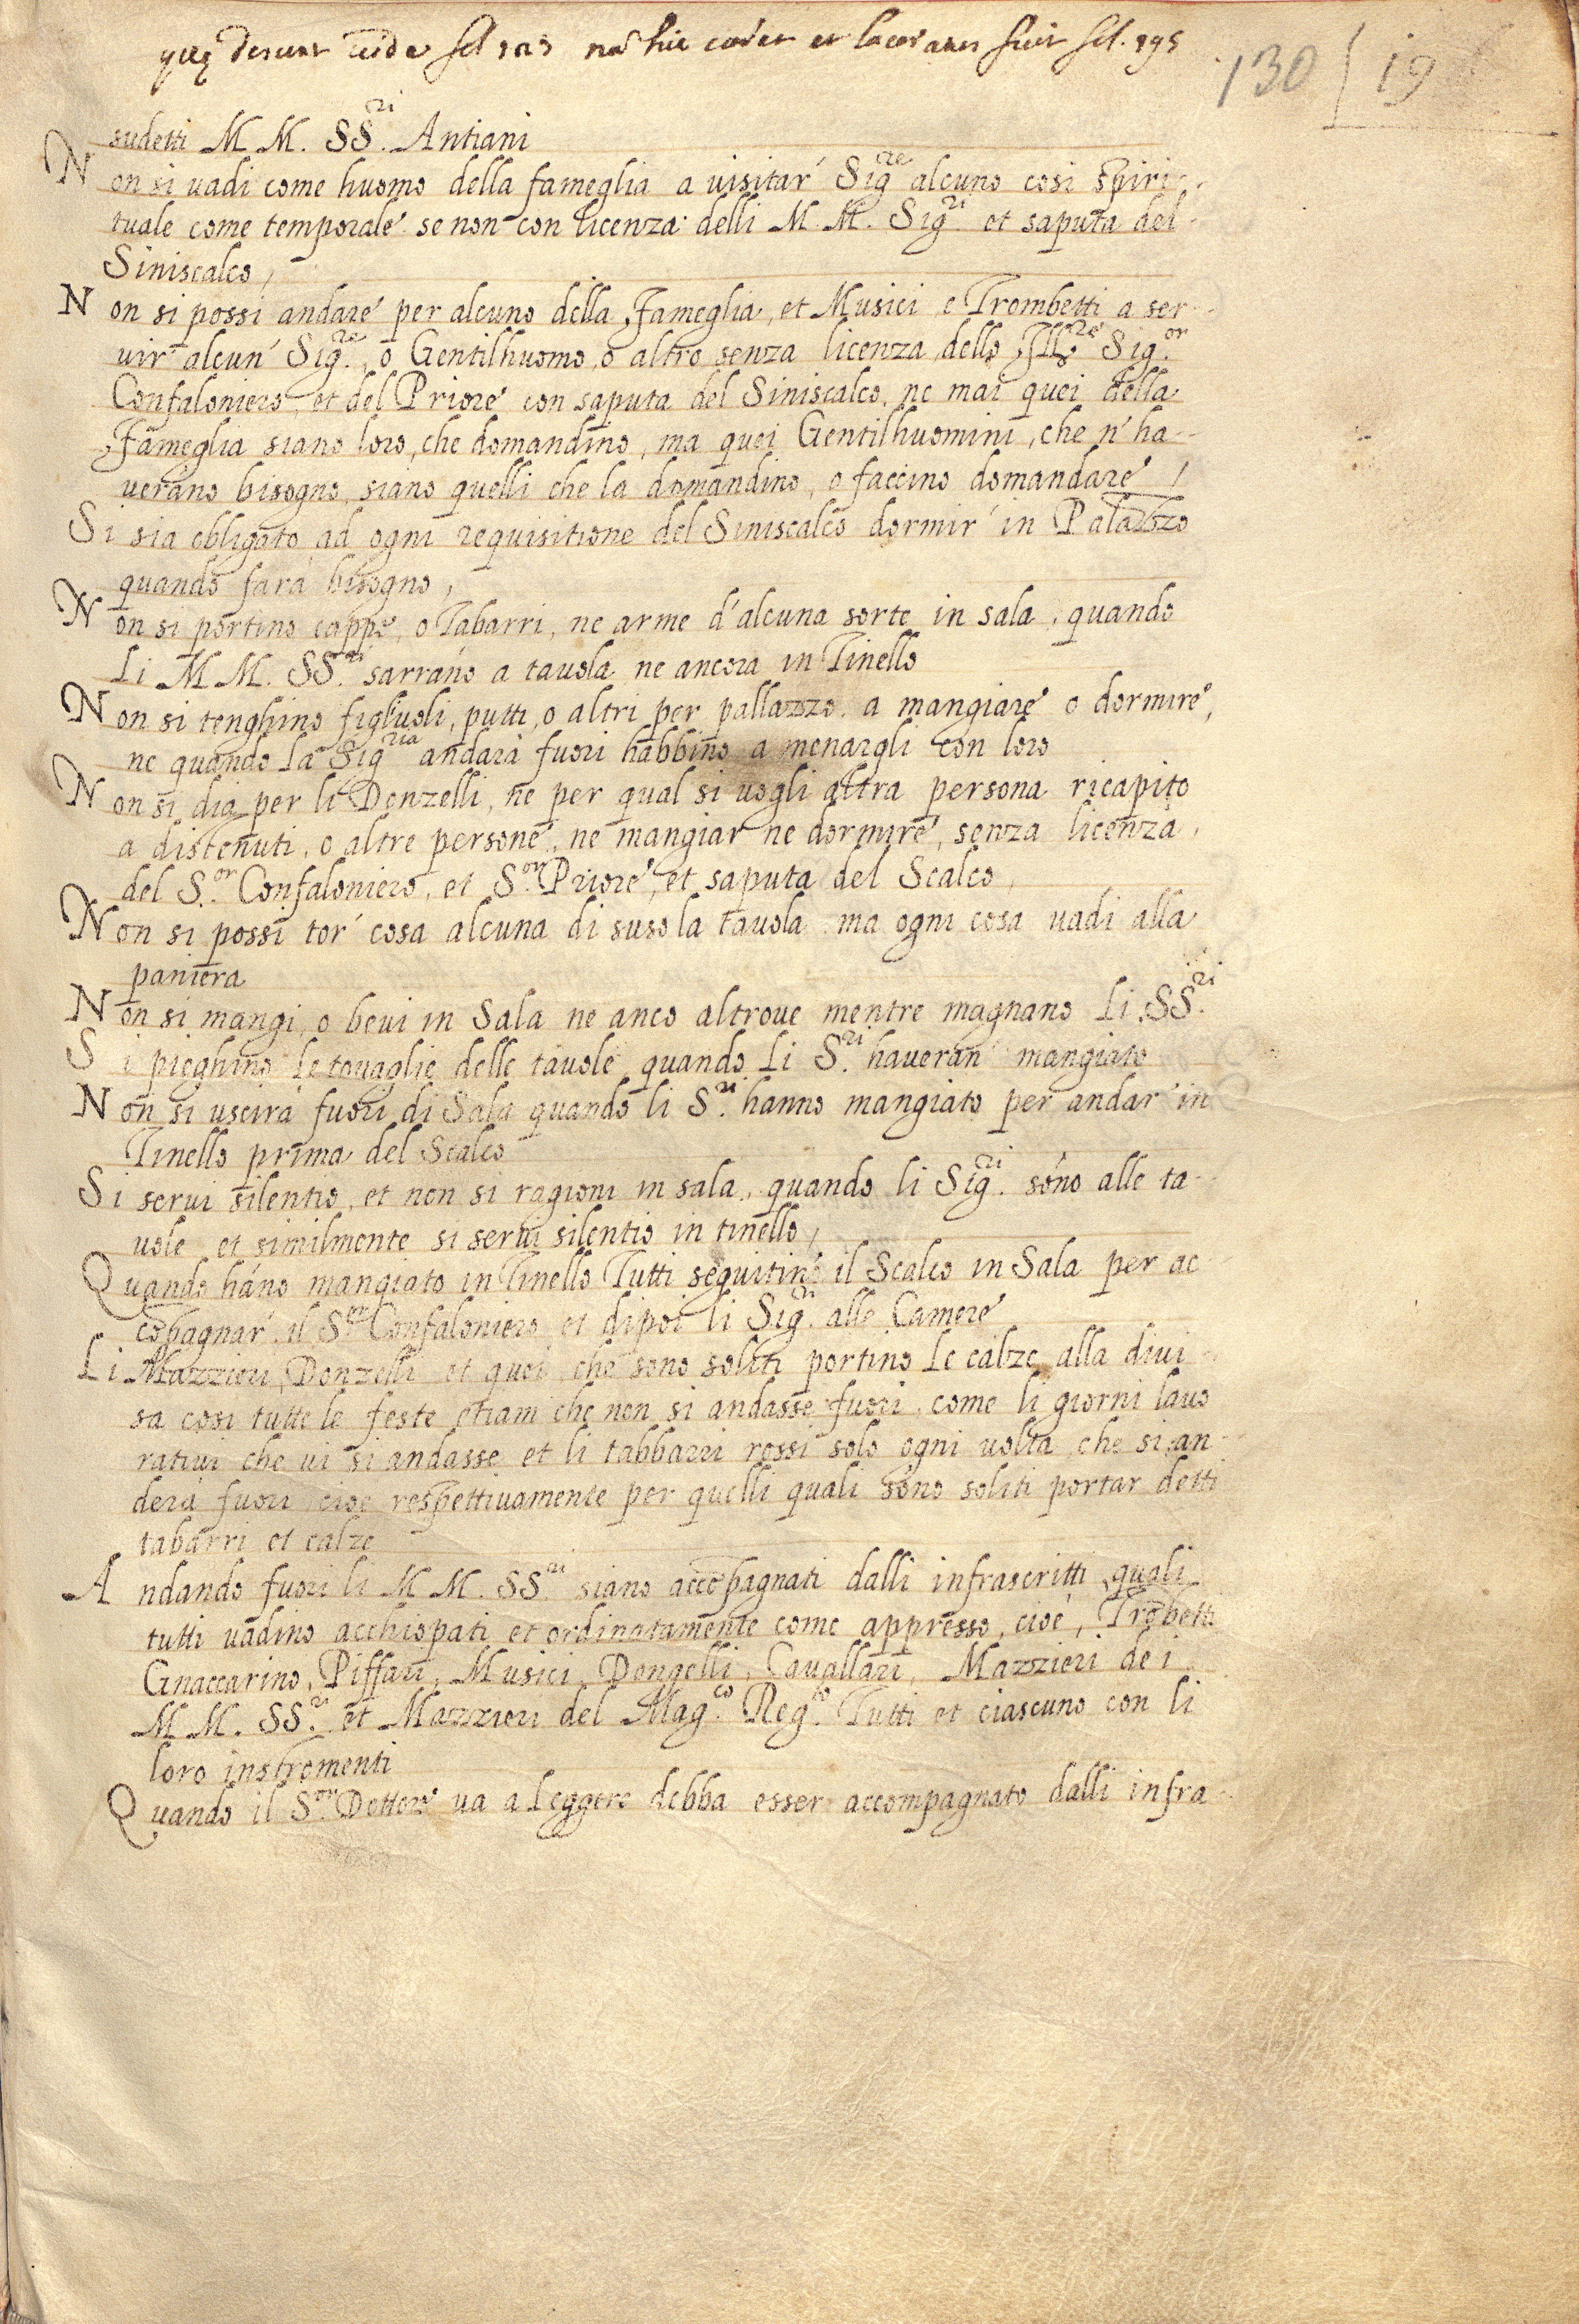 quę desunt vide fol 125 nã hic codex et laceratus fuit fol. 195
130 | 19
sudetti M M. SS.ri Antiani
Non si vadi come huomo della fameglia a visitar' Sig.re alcuno cosi spiri-
tuale come temporale se non con licenza delli M. M. Sig.ri et saputa del
Siniscalco,
Non si possi andare per alcuno della Fameglia, et Musici e Trombetti a ser-
vir alcun' Sig.re, o Gentilhuomo, o altro senza licenza dello Ill.re Sig.or
Confaloniero, et del Priore con saputa del Siniscalco. ne mai quei della
Fameglia siano loro, che domandino, ma quei Gentilhuomini, che n' ha-
verano bisogno, siano quelli che la domandino, o faccino domandare,
Si sia obligato ad ogni requisitione del Siniscalco dormir' in Palazzo
quando farà bisogno,
Non si portino cappe, o Tabarri, ne arme d'alcuna sorte in sala, quando
Li M M. SS.ri sarrano a tavola ne ancora in Tinello
Non si tenghino figliuoli, putti, o altri per pallazzo a mangiare o dormire,
ne quando la Sig.ria andarà fuori habbino a menargli con loro
Non si dia per li Donzelli, ne per qual si vogli altra persona ricapito
a distenuti, o altre persone, ne mangiar ne dormire, senza licenza,
del S.or Confaloniero, et S.or Priore, et saputa del Scalco,
Non si possi tor' cosa alcuna di suso la tavola ma ogni cosa vadi alla
paniera
Non si mangi, o bevi in Sala ne anco altrove mentre magnano Li SS.ri
Si pieghino le tovaglie delle tavole quando Li S.ri haveran mangiato
Non si uscirà fuori di Sala quando li S.ri hanno mangiato per andar in
Tinello prima del Scalco
Si servi silentio, et non si ragioni in sala, quando li Sig.ri sono alle ta-
vole et similmente si servi silentio in tinello,
Quando hãno mangiato in Tinello Tutti seguitino il Scalco in Sala per ac
cõpagnar' il S.or Confaloniero et dipoi li Sig.ri alle Camere
Li Mazzieri, Donzelli et quei, che sono soliti portino le calze alla divi-
sa cosi tutte le feste etiam che non si andasse fuori, come li giorni lavo
rativi che vi si andasse et li tabbarri rossi solo ogni volta che si an-
derà fuori cioe respettivamente per quelli quali sono soliti portar detti
tabarri et calze
Andando fuori li M M. SS.ri siano accõpagnati dalli infrascritti quali
tutti vadino acchiopati et ordinatamente come appresso, cioé, Trõbetti
Gnaccarino, Piffari, Musici, Donzelli, Cavallari, Mazzieri de i
M M. SS.ri et Mazzieri del Mag.co Reg.to Tutti et ciascuno con li
loro instromenti
Quando il S.or Dottore va a Leggere debba esser accompagnato dalli infra-